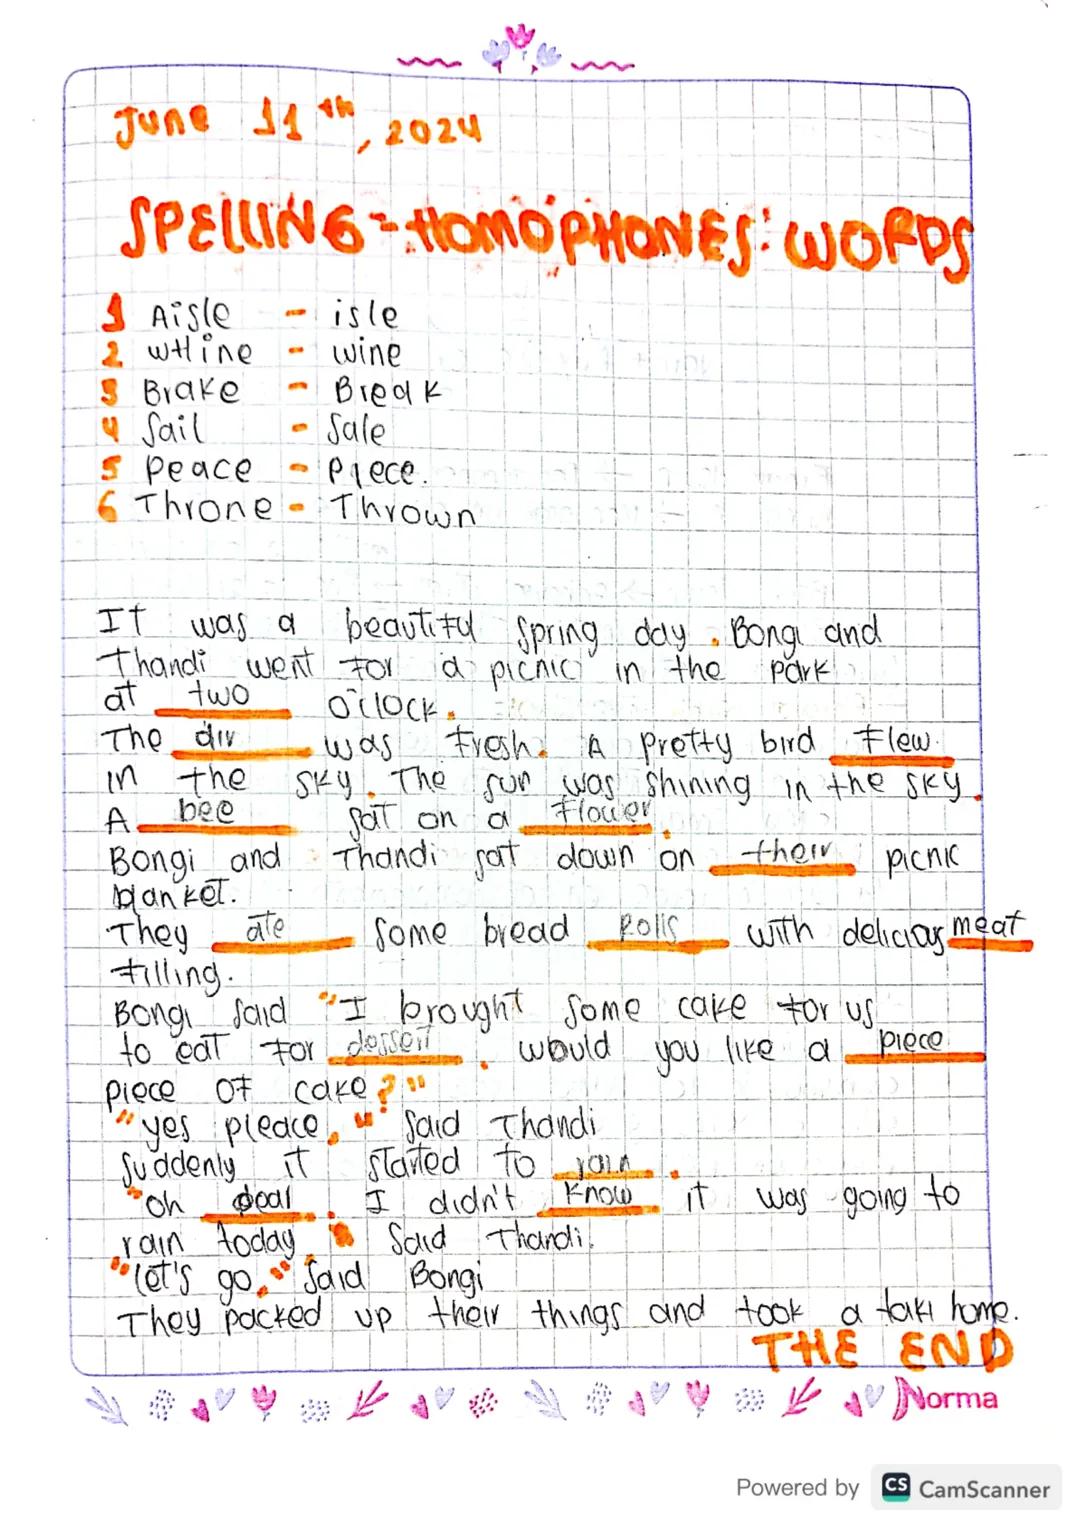 June 11th, 2024
SPELLING - HOMOPHONES: WORDS
1 Aisle - isle
2 wHine - wine
3 Brake - Break
4 Sail - Sale
5 Peace - Piece.
6 Throne - Thrown
It was a beautiful spring day. Bongi and
Thandi went for a picnic in the park
at two o'clock.
The air was fresh. A pretty bird flew
in the sky. The sun was shining in the sky.
A bee sat on a flower.
Bongi and Thandi sat down on their picnic
blanket.
They ate some bread Rolls with delicias meat
filling.
Bongi said "I brought some cake for us
to eat for dessert. would you like a piece
piece of cake?"
"yes pleace," said Thandi
suddenly it started to rain.
"oh dear. I didn't know it was going to
rain today." said Thandi.
"let's go," said Bongi
They packed up their things and took a taxi home.
THE END
Norma
Powered by CS CamScanner